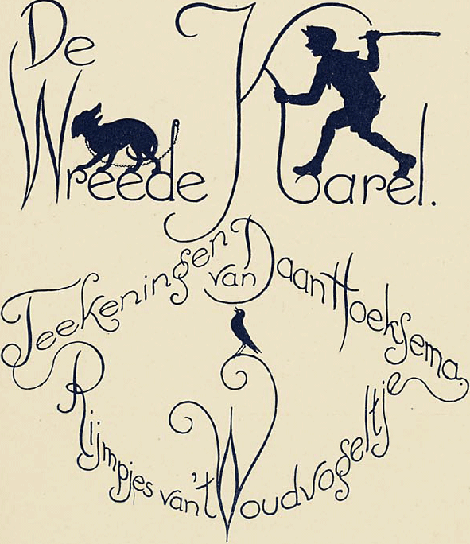 De
Wreede Karel.
Teekeningen van Daan Hoeksema.
Rijmpjes van 't Woudvogeltje